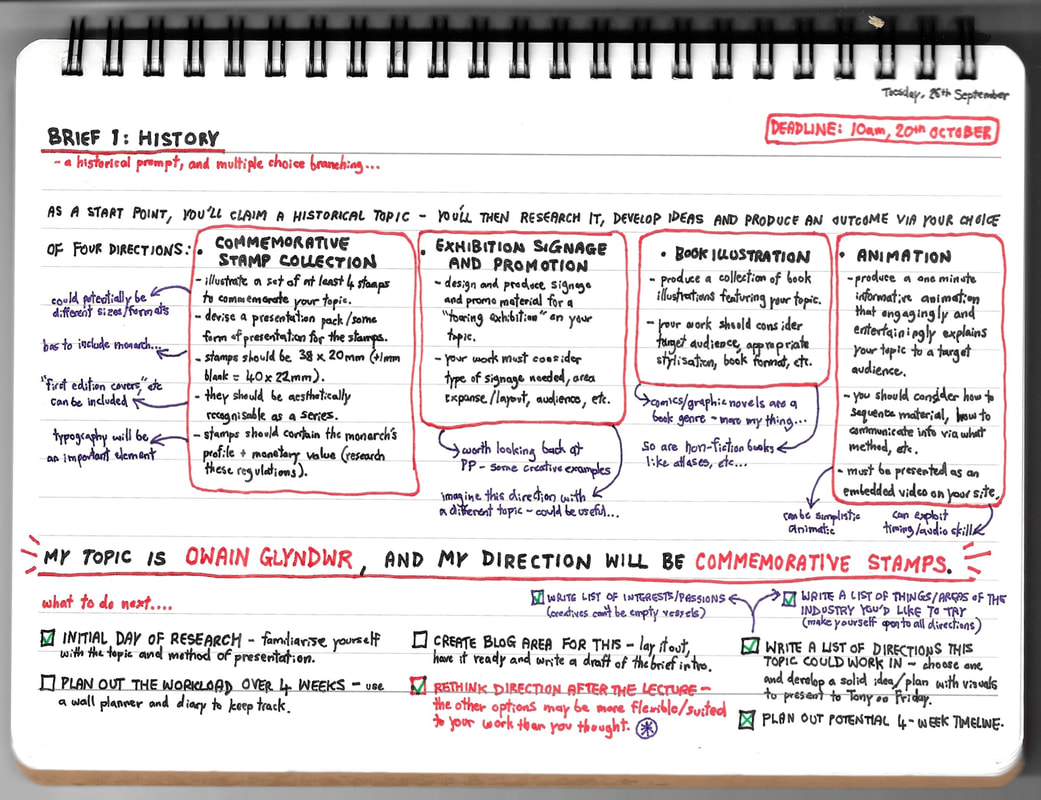 Tuesday, 26th September
BRIEF 1: HISTORY
DEADLINE: 10am, 20th OCTOBER
- a historical prompt, and multiple choice branching...
AS A START POINT, YOU'LL CLAIM A HISTORICAL TOPIC - YOU'LL THEN RESEARCH IT, DEVELOP IDEAS AND PRODUCE AN OUTCOME VIA YOUR CHOICE
OF FOUR DIRECTIONS:
• COMMEMORATIVE
STAMP COLLECTION
- illustrate a set of at least 4 stamps
to commemorate your topic.
- devise a presentation pack/some
form of presentation for the stamps.
- stamps should be 38 x 20mm (+1mm
blank = 40 x 22mm).
- they should be aesthetically
recognisable as a series.
- stamps should contain the monarch's
profile + monetary value (research
these regulations).
could potentially be
different sizes/formats
has to include monarch...
"first edition covers," etc
can be included
typography will be
an important element
• EXHIBITION SIGNAGE
AND PROMOTION
- design and produce signage
and promo material for a
"touring exhibition" on your
topic.
- your work must consider
type of signage needed, area
expanse/layout, audience, etc.
worth looking back at
PP - some creative examples
imagine this direction with
a different topic - could be useful...
• BOOK ILLUSTRATION
- produce a collection of book
illustrations featuring your topic.
- your work should consider
target audience, appropriate
stylisation, book format, etc.
comics/graphic novels are a
book genre - more my thing...
so are non-fiction books
like atlases, etc...
• ANIMATION
- produce a one minute
informative animation
that engagingly and
entertainingly explains
your topic to a target
audience.
- you should consider how to
sequence material, how to
communicate info via what
method, etc.
- must be presented as an
embedded video on your site.
can be simplistic
animatic
can exploit
timing/audio skills
MY TOPIC IS OWAIN GLYNDWR, AND MY DIRECTION WILL BE COMMEMORATIVE STAMPS.
what to do next....
WRITE LIST OF INTERESTS/PASSIONS
(creatives can't be empty vessels)
WRITE A LIST OF THINGS/AREAS OF THE
INDUSTRY YOU'D LIKE TO TRY
(make yourself open to all directions)
INITIAL DAY OF RESEARCH - familiarise yourself
with the topic and method of presentation.
PLAN OUT THE WORKLOAD OVER 4 WEEKS - use
a wall planner and diary to keep track.
CREATE BLOG AREA FOR THIS - lay it out,
have it ready and write a draft of the brief intro.
RETHINK DIRECTION AFTER THE LECTURE -
the other options may be more flexible/suited
to your work than you thought.
WRITE A LIST OF DIRECTIONS THIS
TOPIC COULD WORK IN - choose one
and develop a solid idea/plan with visuals
to present to Tony on Friday.
PLAN OUT POTENTIAL 4-WEEK TIMELINE.